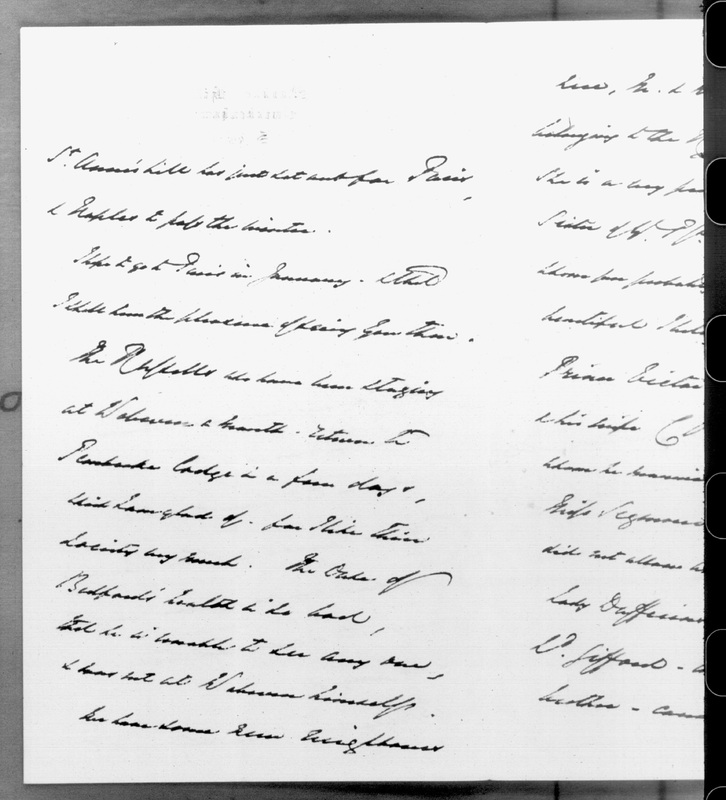 St. Anne's hill has just set out for Paris,
& Naples to pass the winter.
I hope to go to Paris in January - & that
I shall have the pleasure of seeing you then.
The Russells who have been staying
at Woburn a month - return to
Pembroke Lodge in a few days,
which I am glad of - for I like their
Society very much. The Duke of
Bedford's health is so bad,
that he is unable to see any one,
& was not at Woburn himself.
We have some new neighbours
here, Mr. &
belonging to the
She is a very
Sister of
whom you probably
beautiful
Prince Victor
& his wife
whom he married
Miss Seymour
did not allow
Lady Dufferin
Ld. Gifford -
brother -